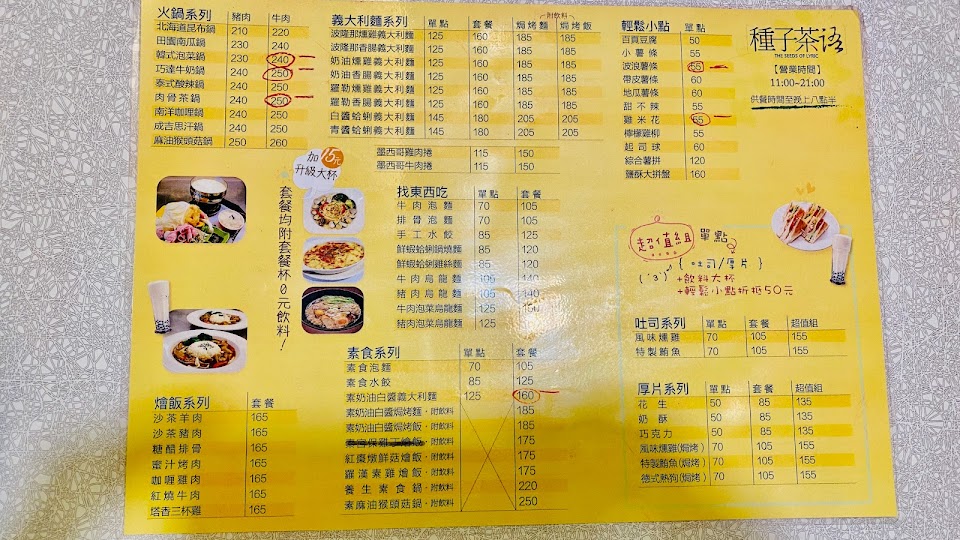 火鍋系列 豬肉 牛肉
北海道昆布鍋 210 220
田園南瓜鍋 230 240
韓式泡菜鍋 230 240
巧達牛奶鍋 240 250
泰式酸辣鍋 240 250
肉骨茶鍋 240 250
南洋咖哩鍋 240 250
成吉思汗鍋 240 250
麻油猴頭菇鍋 250 260
附飲料
義大利麵系列 單點 套餐 焗烤麵 焗烤飯
波隆那燻雞義大利麵 125 160 185 185
波隆那香腸義大利麵 125 160 185 185
奶油燻雞義大利麵 125 160 185 185
奶油香腸義大利麵 125 160 185 185
羅勒燻雞義大利麵 125 160 185 185
羅勒香腸義大利麵 125 160 185 185
白醬蛤蜊義大利麵 145 180 205 205
青醬蛤蜊義大利麵 145 180 205 205
墨西哥雞肉捲 115 150
墨西哥牛肉捲 115 150
輕鬆小點 單點
百頁豆腐 50
小薯條 55
波浪薯條 55
帶皮薯條 60
地瓜薯條 60
甜不辣 55
雞米花 65
檸檬雞柳 55
起司球 60
綜合薯拼 120
鹽酥大拼盤 160
種子茶语
THE SEEDS OF LYRIC
【營業時間】
11:00~21:00
供餐時間至晚上八點半
加15元
升級大杯
套餐均附套餐杯0元飲料!
找東西吃 單點 套餐
牛肉泡麵 70 105
排骨泡麵 70 105
手工水餃 85 125
鮮蝦蛤蜊鍋燒麵 85 120
鮮蝦蛤蜊雞絲麵 85 120
牛肉烏龍麵 105 140
豬肉烏龍麵 105 140
牛肉泡菜烏龍麵 125 160
豬肉泡菜烏龍麵 125
超值組 單點
{吐司/厚片}
+飲料大杯
+輕鬆小點折抵50元
吐司系列 單點 套餐 超值組
風味燻雞 70 105 155
特製鮪魚 70 105 155
素食系列 單點 套餐
素食泡麵 70 105
素食水餃 85 125
素奶油白醬義大利麵 125 160
素奶油白醬焗烤麵·附飲料 185
素奶油白醬焗烤飯·附飲料 185
素宮保雞丁燴飯·附飲料 175
紅棗燉鮮菇燴飯·附飲料 175
羅漢素雞燴飯·附飲料 175
養生素食鍋·附飲料 220
素麻油猴頭菇鍋·附飲料 250
燴飯系列 套餐
沙茶羊肉 165
沙茶豬肉 165
糖醋排骨 165
蜜汁烤肉 165
咖哩雞肉 165
紅燒牛肉 165
塔香三杯雞 165
厚片系列 單點 套餐 超值組
花生 50 85 135
奶酥 50 85 135
巧克力 50 85 135
風味燻雞(焗烤) 70 105 155
特製鮪魚(焗烤) 70 105 155
德式熱狗(焗烤) 70 105 155